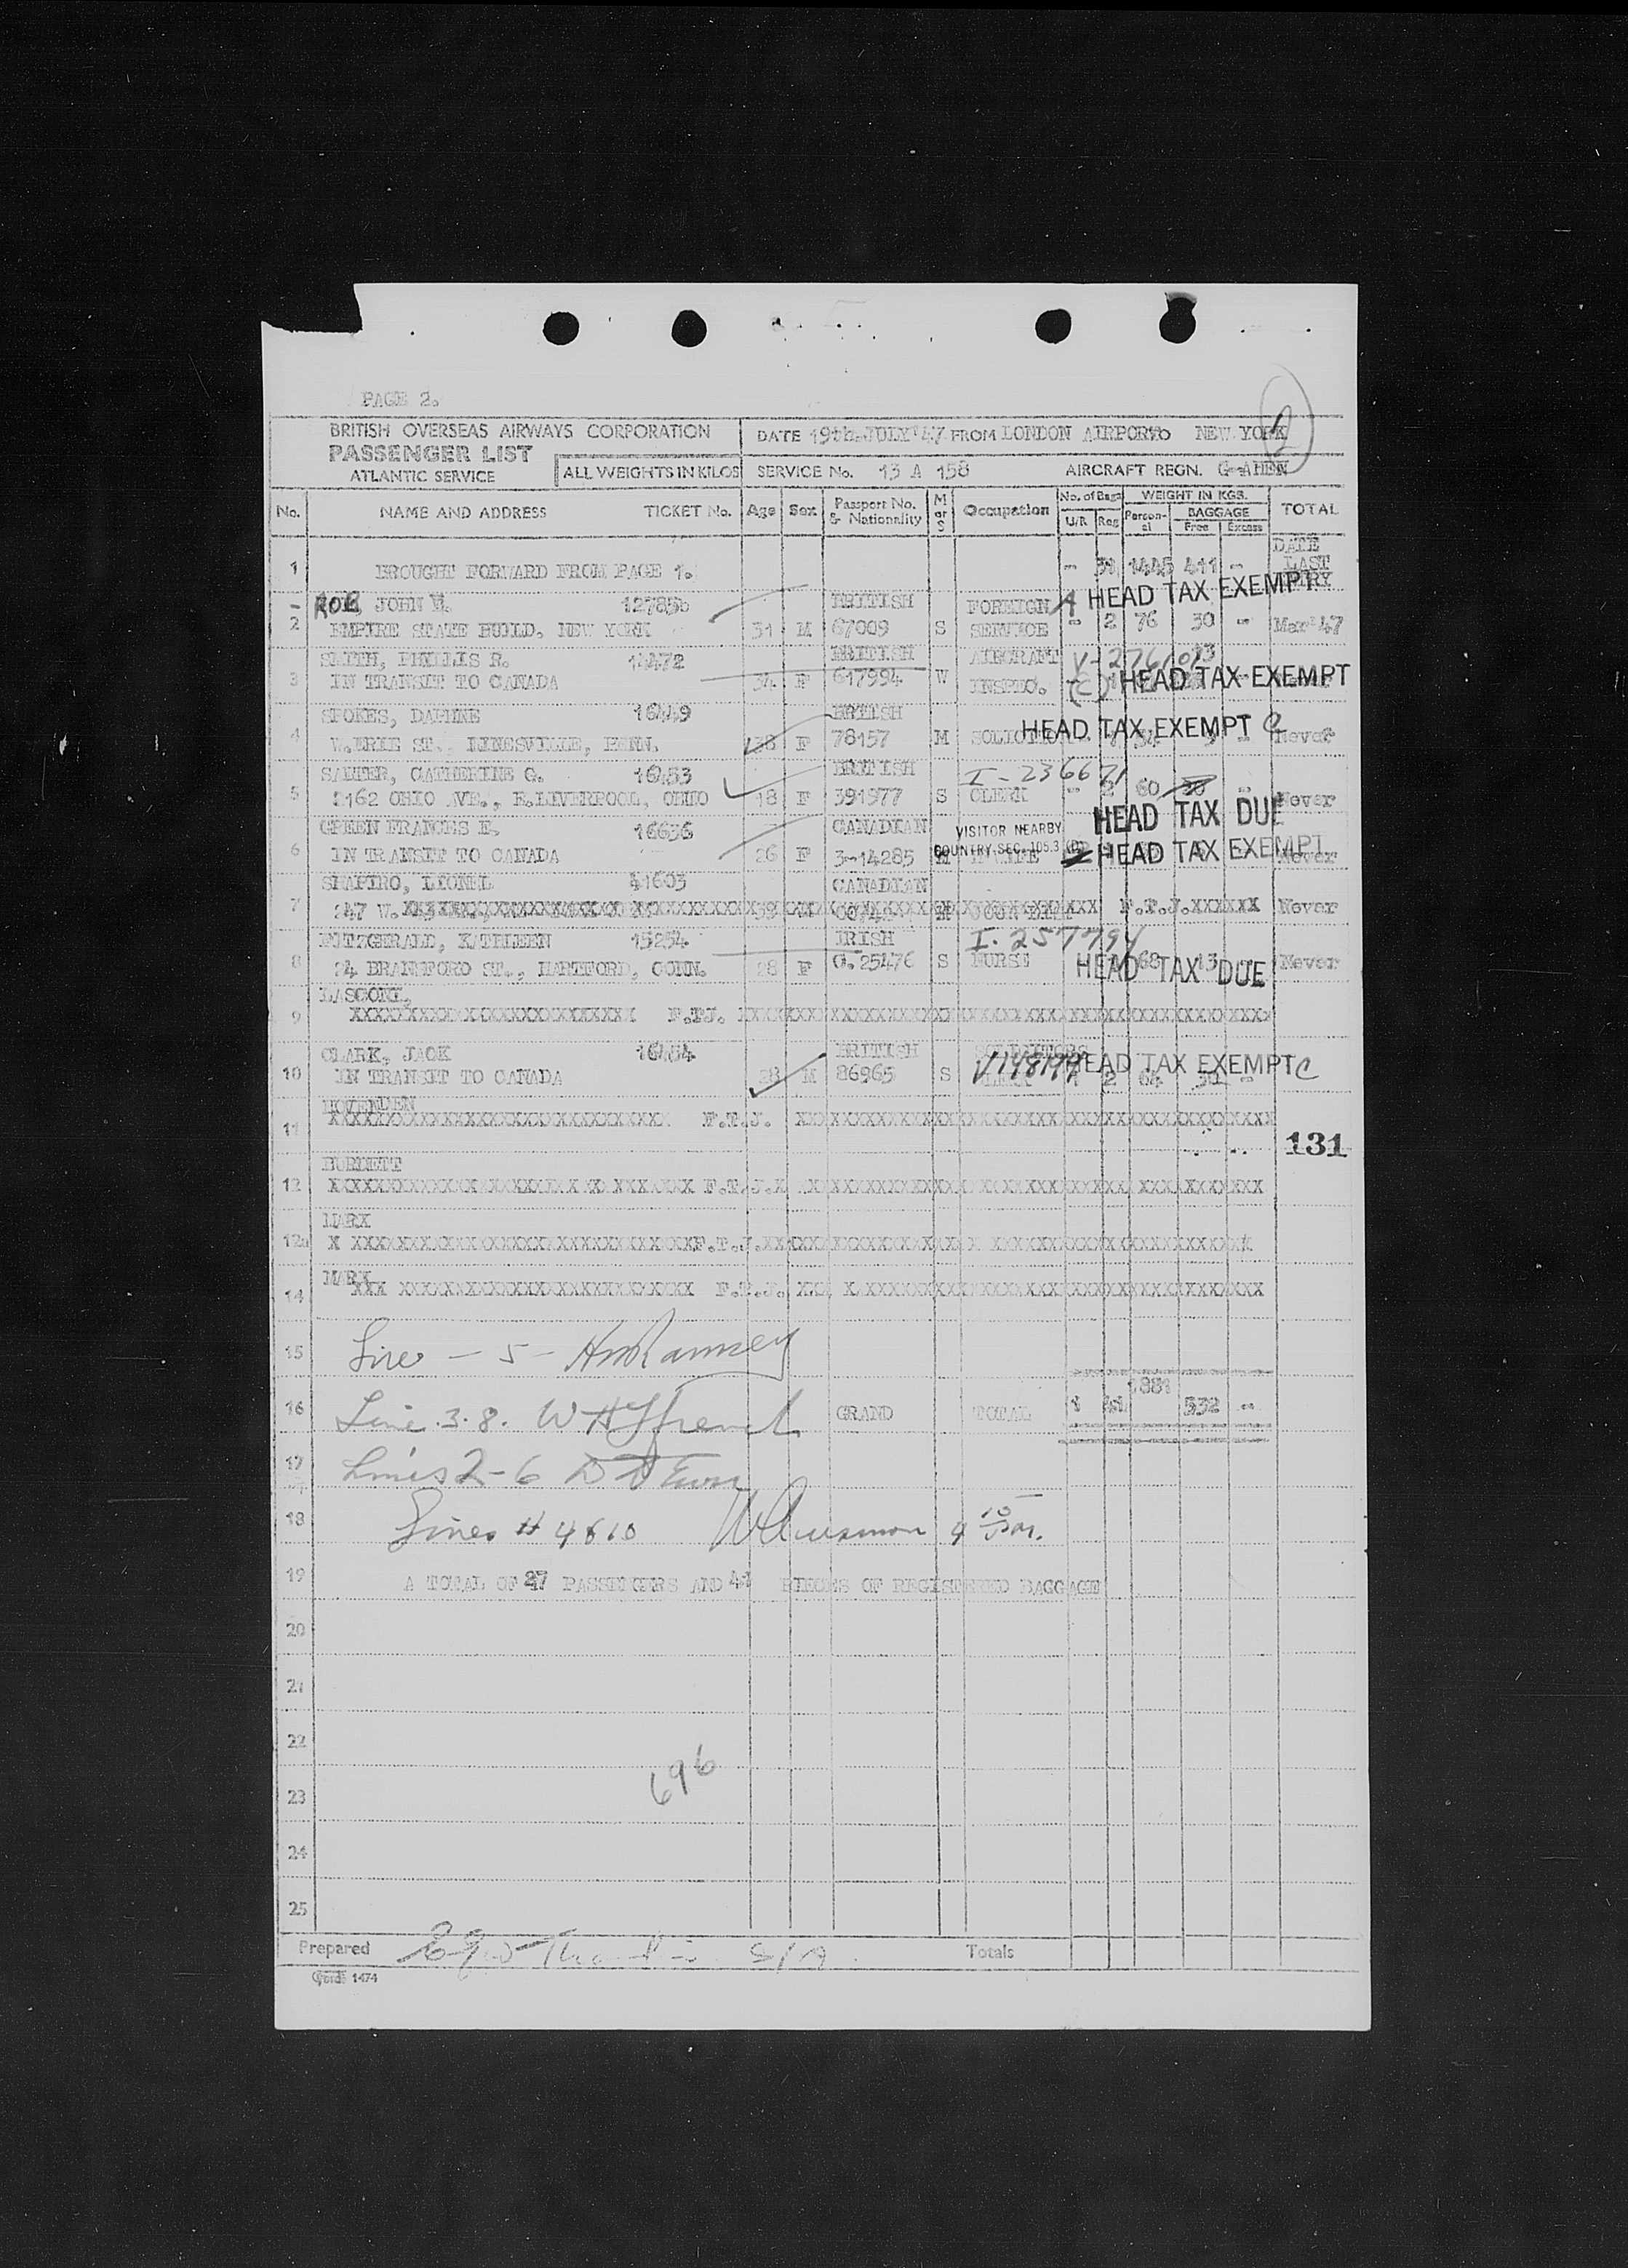 PAGE 2.
BRITISH OVERSEAS AIRWAYS CORPORATION
PASSENGER LIST
ATLANTIC SERVICE
ALL WEIGHTS IN KILOS
DATE 19th. JULY '47 FROM LONDON AIRPORT TO NEW YORK
2
SERVICE No. 13 A 158 AIRCRAFT REGN. G-AHEN
No. NAME AND ADDRESS TICKET No. Age Sex Passport No. & Nationality M or S Occupation No. of Bags U/R Reg WEIGHT IN KGS. Personal BAGGAGE Free Excess TOTAL
DATE LAST ENTRY
1 BROUGHT FORWARD FROM PAGE 1. - 31 1445 411 -
JOHN W. 12785b BRITISH FOREIGN A HEAD TAX EXEMPT
2 EMPIRE STATE BUILD, NEW YORK 31 M 67009 S SERVICE - 2 76 30 - Mar '47
SMITH, PHYLLIS R. 14472 BRITISH AIRCRAFT V-2761013
3 IN TRANSIT TO CANADA 34 F 617994 W INSPEC. (C) HEAD TAX EXEMPT
SPOKES, DAPHNE 16449 BRITISH HEAD TAX EXEMPT C
4 W.ERIE ST., LINESVILLE, PENN. 38 F 78157 M Never
SALTER, CATHERINE G. 16453 BRITISH I-236671
5 2162 OHIO AVE., E.LIVERPOOL, OHIO 18 F 391977 S CLERK - 2 60 - Never
HEAD TAX DUE
GREEN FRANCES E. 16636 CANADIAN VISITOR NEARBY
6 IN TRANSIT TO CANADA 26 F 3-14285 COUNTRY SEC. 105.3 HEAD TAX EXEMPT Never
SHAPIRO, LIONEL 41603 CANADIAN
7 247 W. F.T.J.XXXXXX Never
FITZGERALD, KATHLEEN 15254 IRISH I-257794
8 24 BRANSFORD ST., HARTFORD, CONN. 28 F C.25476 S NURSE 68 13 Never
HEAD TAX DUE
9 F.TJ.
CLARK, JACK 16454 BRITISH SOLICITORS V148199 HEAD TAX EXEMPT C
10 IN TRANSIT TO CANADA 28 M 86965 S 2 64 30 -
11 F.T.J.
131
BURNETT
12 F.T.J.
MARX
12a F.T.J.
MARX
14 F.T.J.
15 Line - 5 - Ramsey
16 Line 3.8. GRAND TOTAL 1 41 1881 532 -
17 Lines 2-6
18 Lines # 4 & 10
19 A TOTAL OF 27 PASSENGERS AND 41 PIECES OF REGISTERED BAGGAGE
20
21
22
696
23
24
25
Prepared Totals
1474